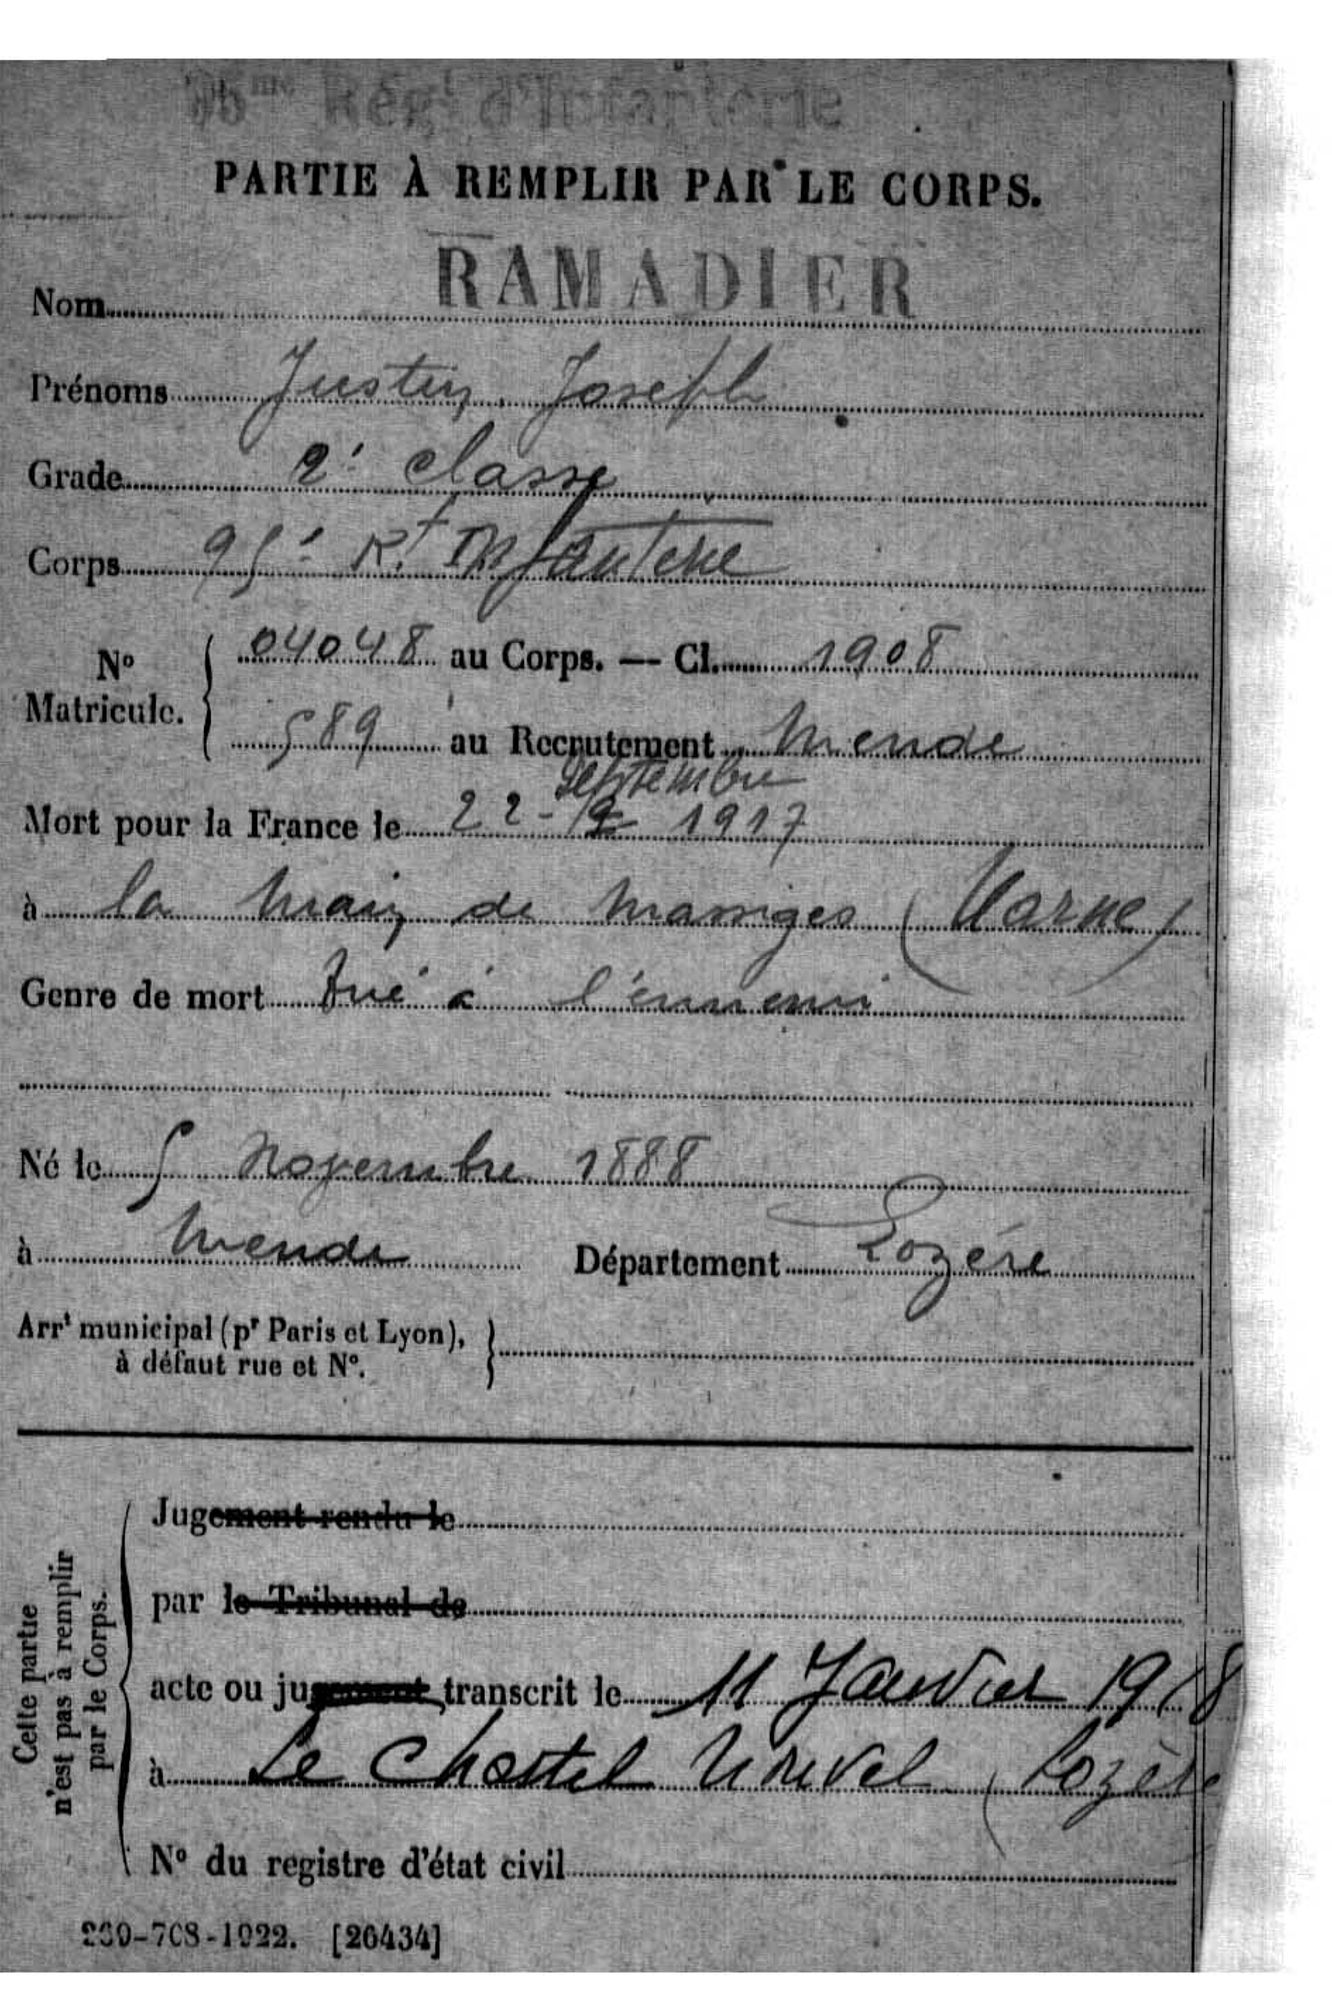 Régt d'Infanterie
PARTIE À REMPLIR PAR LE CORPS.
Nom RAMADIER
Prénoms Justin Joseph
Grade 2e classe
Corps 95e Rt Infanterie
No Matricule. 04048 au Corps. — Cl. 1908
589 au Recrutement Mende
septembre
Mort pour la France le 22 - 1917
à la Main de Massiges (Marne)
Genre de mort tué à l'ennemi
Né le 5 Novembre 1888
à Mende Département Lozére
Arrt municipal (pr Paris et Lyon),
à défaut rue et No.
Cette partie
n'est pas à remplir
par le Corps.
Jugement rendu le
par le Tribunal de
acte ou jugement transcrit le 11 Janvier 1918
à Le Chastel Nouvel (Lozère
No du registre d'état civil
269-708-1922. [26434]